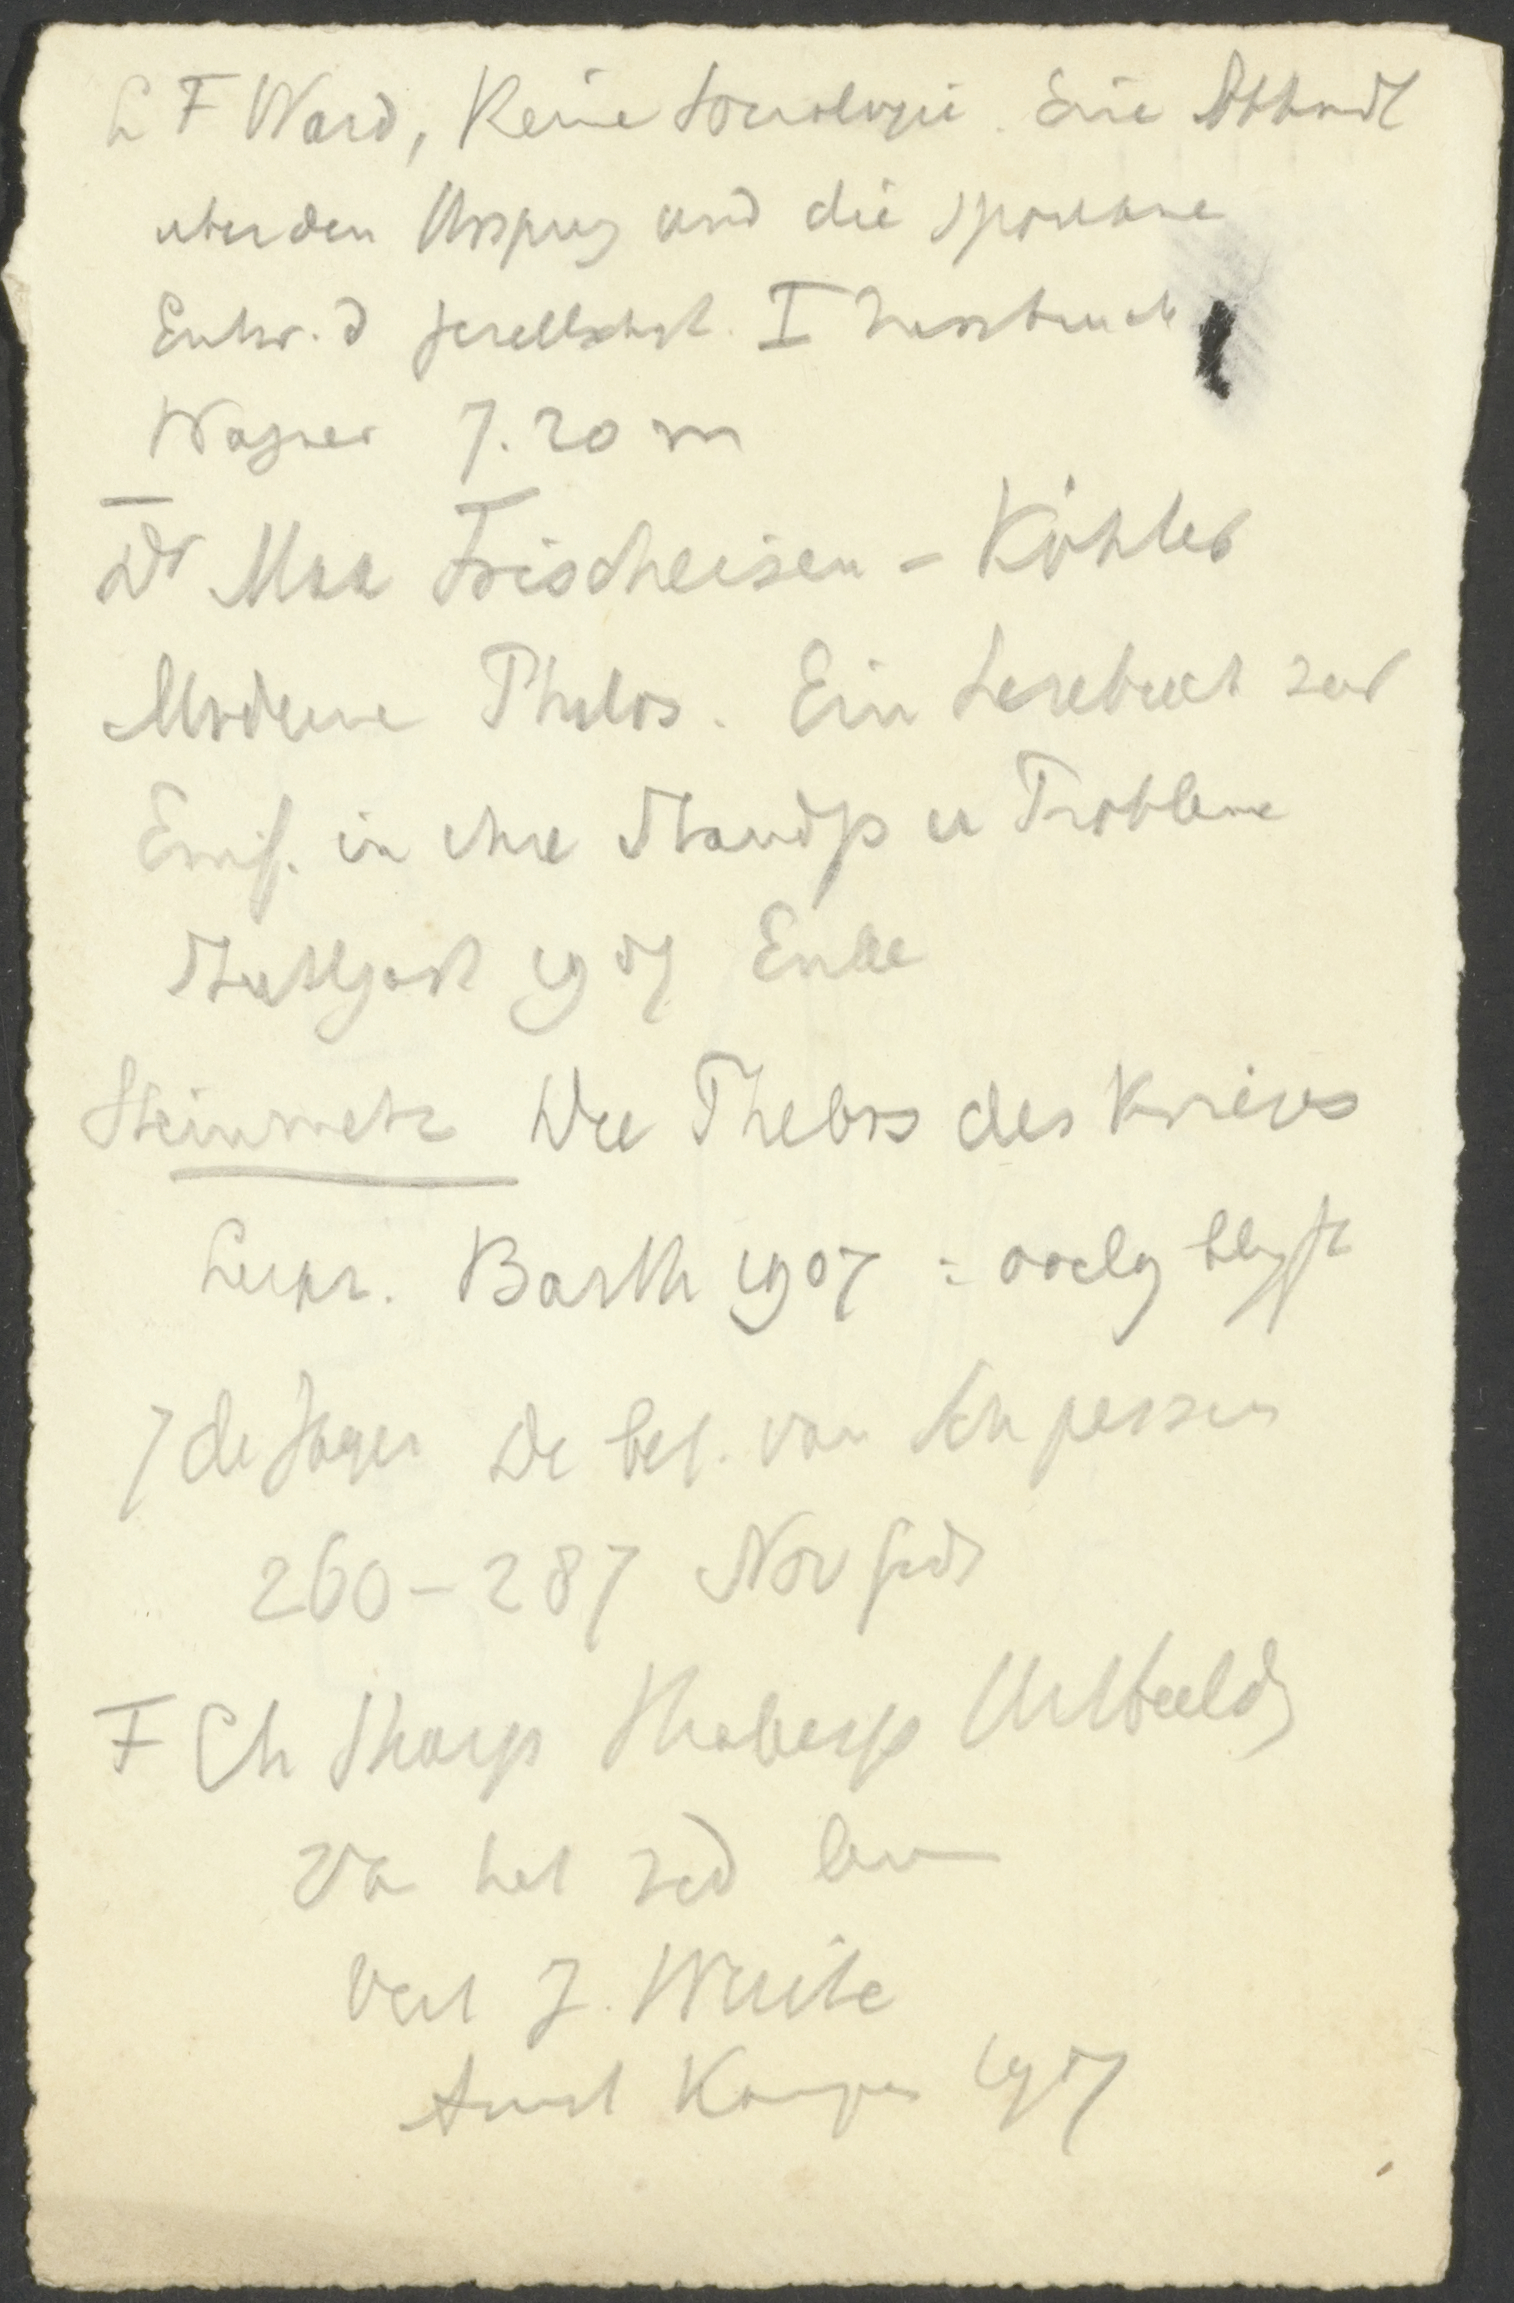 L F Ward, Reine Sociologie. Eine Abhandl
uber den Ursprung und die spontane
Entw. d Gesellschaft. I Innsbruck
Wagner 7.20 m
Dr Max Frischeisen-Köhler
Moderne Philos. Ein Lesebuch zur
Einf. in ihre Standp u Probleme
Stuttgart 1907 Enke
Steinmetz Die Philos des Krieges
Leipz. Barth 1907 =
J de Jager De bet. van
260-287 Nov Gids
F Ch Sharp
van het zed leven
vert J. Wuite
Amst 1907